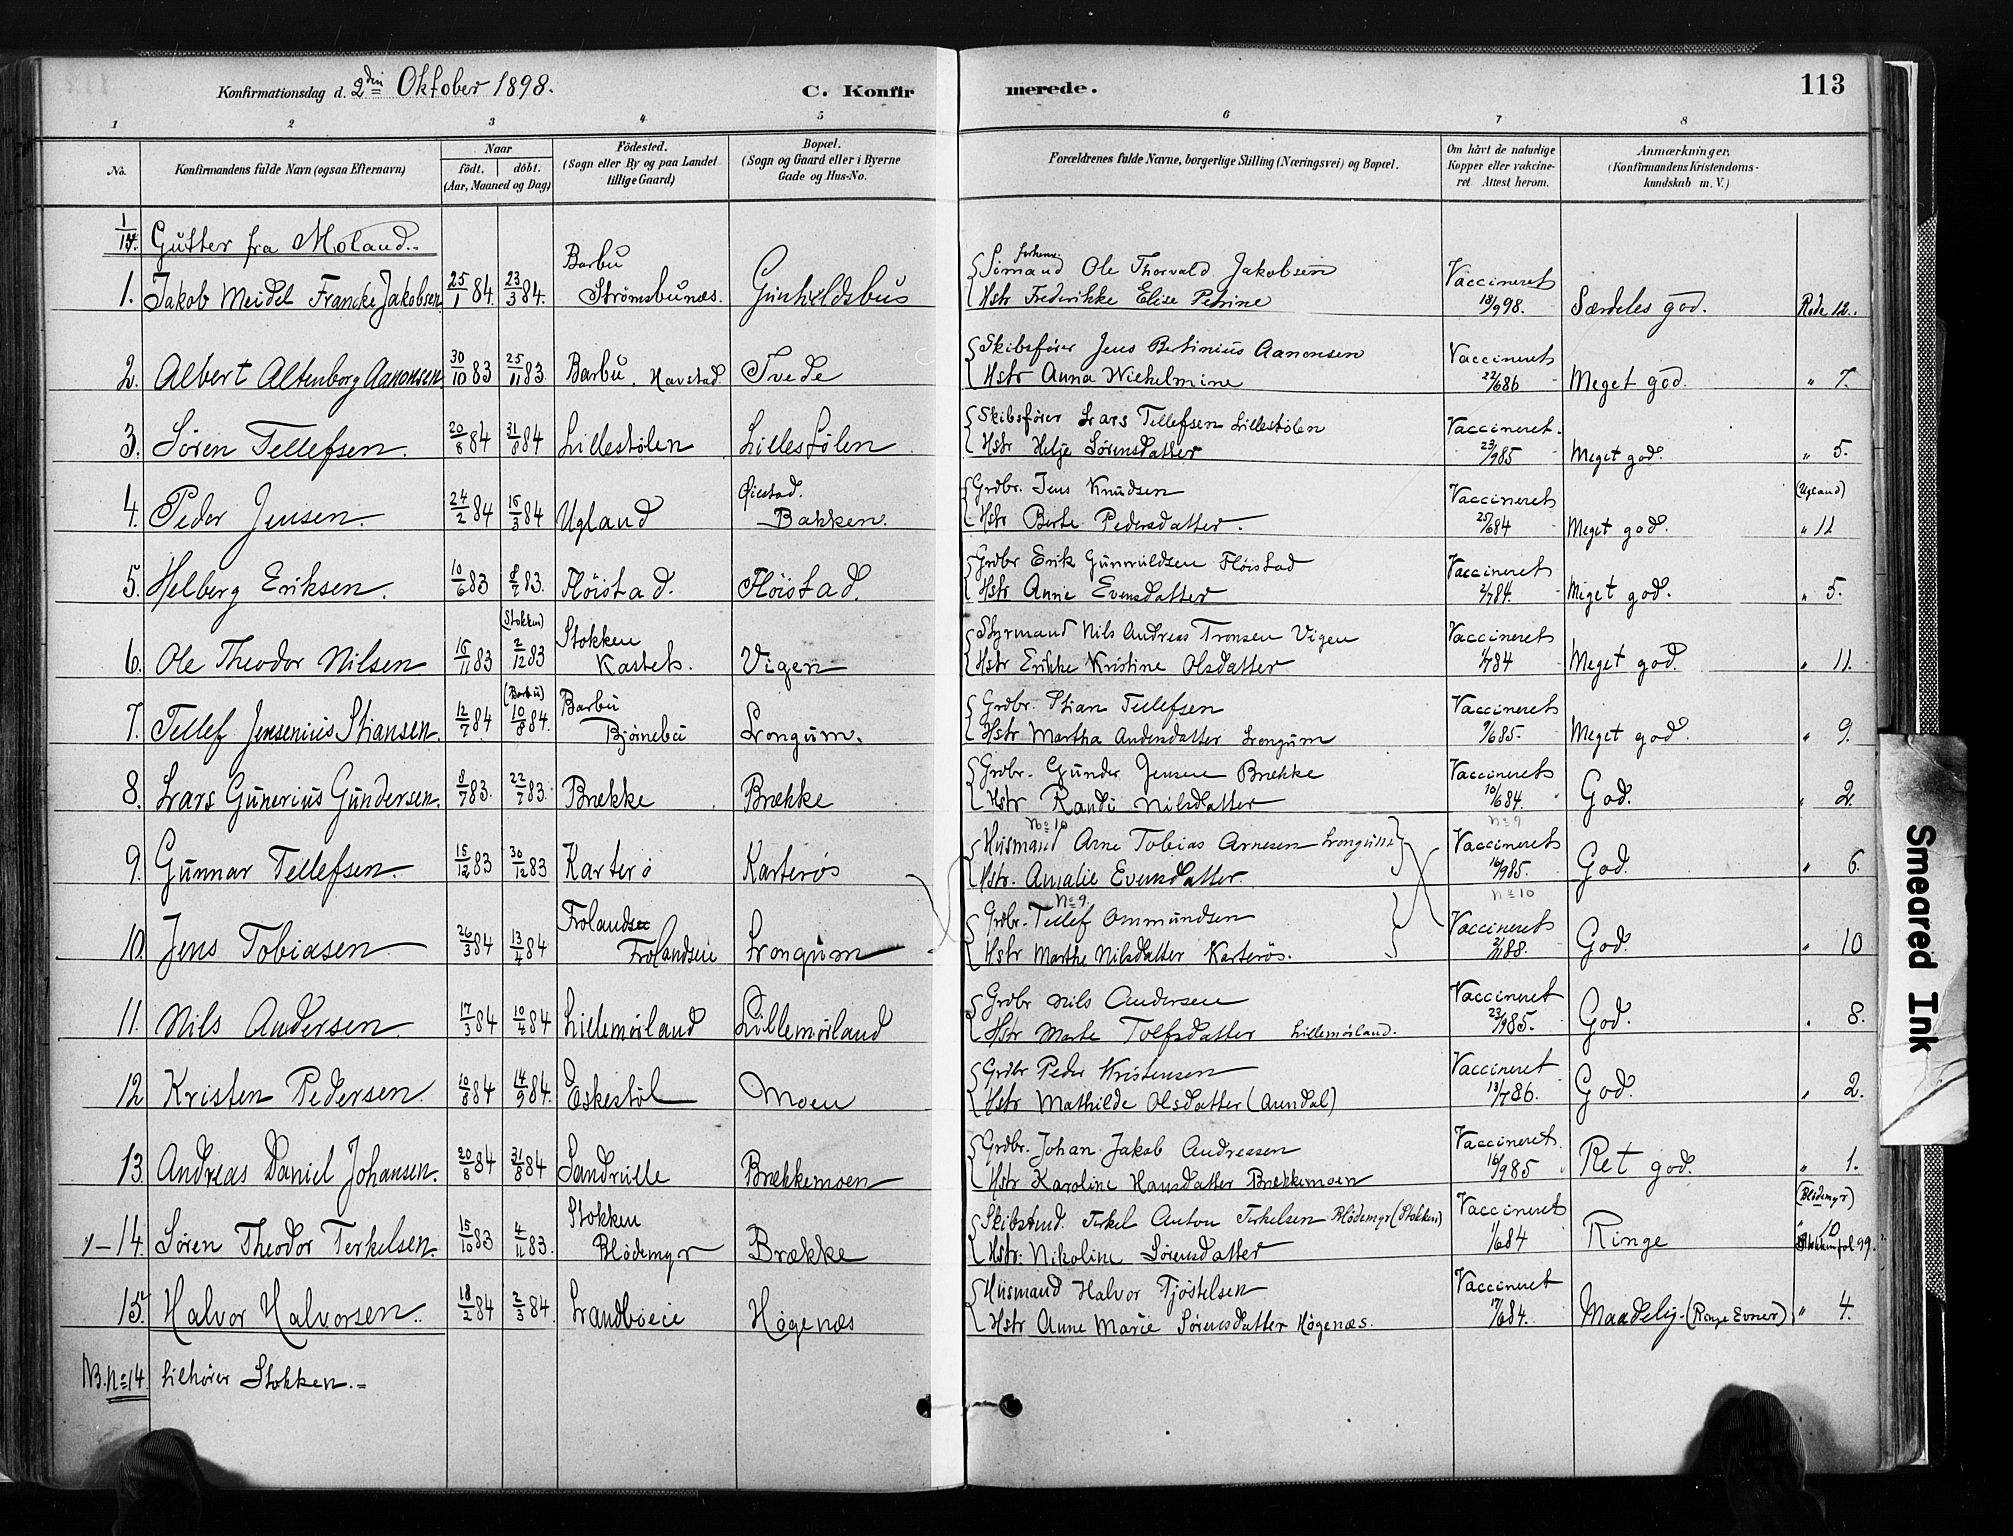 Konfirmationsdag d. 2den Oktober 1898.
C. Konfir
merede.
113
1 2 3 4 5 6 7 8
No.
Konfirmandens fulde Navn (ogsaa Efternavn)
Naar
født. døbt.
(Aar, Maaned og Dag)
Fødested.
(Sogn eller By og paa Landet
tillige Gaard)
Bopæl.
(Sogn og Gaard eller i Byerne
Gade og Hus-No.
Forældrenes fulde Navne, borgerlige Stilling (Næringsvei) og Bopæl.
Om havt de naturlige
Kopper eller vaccine-
ret Attest herom.
Anmærkninger,
(Konfirmandens Kristendoms-
kundskab m. V.)
Gutter fra Moland.
1. Jakob Meidel Francke Jakobsen 25/1 84. 23/3 84. Barbu Strømsbunæs. Gunhildsbus
Sømand Ole Thorvald Jakobsen
Hstr Frederikke Elise Petrine
Vaccineret 13/9 98. Særdeles god. Rode 12.
2. Albert Altenborg Aanonsen 30/10 83 25/11 83 Barbu. Havstad Tvede
Skibsfører Jens Bertinius Aanonsen
Hstr Anna Wilhelmine
Vaccineret 22/6 86 Meget god. " 7.
3. Søren Tellefsen. 20/8 84 31/8 84 Lillestølen Lillestølen
Skibsfører Lars Tellefsen Lillestølen
Hstr Helje Sørensdatter
Vaccineret. 23/9 85 Meget god. " 5.
4. Peder Jensen. 24/2 84 16/3 84 Ugland Øiestad. Bakken.
Grdbr. Jens Knudsen
Hstr Berte Pedersdatter.
Vaccineret 25/6 84 Meget god. (Ugland) " 11
5. Helberg Eriksen. 10/6 83 8/7 83. Fløistad. Fløistad.
Grdbr Erik Gunvuldsen Fløistad
Hstr Anne Evensdatter
Vaccineret 2/7 84. Meget god. " 5.
6. Ole Theodor Nilsen 16/11 83 (Stokken) 2/12 83 Stokken Kastet. Vigen
Styrmand Nils Andreas Tronsen Vigen
Hstr Erikke Kristine Olsdatter
Vaccineret 1/7 84 Meget god. " 11.
7. Tellef Jensenius Stiansen. 12/7 84 (Barbu) 10/8 84. Barbu Bjørnebu Longum.
Grdbr. Stian Tellefsen
Hstr Martha Andersdatter Longum
Vaccineret 9/6 85. Meget god. " 9.
8. Lars Gunerius Gundersen. 8/7 83. 22/7 83. Brække Brække
Grdbr. Gunder Jensen Brække
Hstr Randi Nilsdatter
Vaccineret 10/6 84. God. " 2.
9. Gunnar Tellefsen. 15/12 83 30/12 83 Karterø Karterøs
No 10
Husmand Arne Tobias Arnesen Longum
Hstr. Amalie Evensdatter.
No 9
Vaccineret 16/9 85. God. " 6.
10. Jens Tobiasen 26/3 84 13/4 84 Frolandseie Longum
No 9
Grdbr. Tellef Ommundsen
Hstr Marthe Nilsdatter Karterøs.
No 10
Vaccineret 2/1 88. God. " 10
11. Nils Andersen. 17/3 84 10/4 84 Lillemørland Lillemørland
Grdbr Nils Andersen
Hstr Marte Tolfsdatter Lillemørland.
Vaccineret 23/9 85. God. " 8.
12 Kristen Pedersen. 10/8 84 14/9 84. Eskestøl Moen
Grdbr Peder Kristensen
Hstr Mathilde Olsdatter (Arendal)
Vaccineret 13/7 86. God. " 2.
13. Andreas Daniel Johansen. 20/8 84 31/8 84 Sandville Brækkemoen
Grdbr. Johan Jakob Andreasen
Hstr Karoline Hansdatter Brækkemoen
Vaccineret. 16/9 85 Ret god. " 1.
14. Søren Theodor Terkelsen. 15/10 83 4/11 83. Stokken Blødemyr Brække
Terkel Anton Terkelsen Blødemyr (Stokken)
Hstr. Nikoline Sørensdatter
Vaccineret 1/6 84 Ringe (Blødemyr) " 10
Stokken fol 99.
15. Halvor Halvorsen. 18/2 84 2/3 84. Høgenæs
Husmand Halvor Tjøstelsen
Hstr Anne Marie Sørensdatter Høgenæs.
Vaccineret 17/6 84. Maadelig. (Ringe Evner) " 4.
NB. No 14. tilhører Stokken.
Smeared Ink